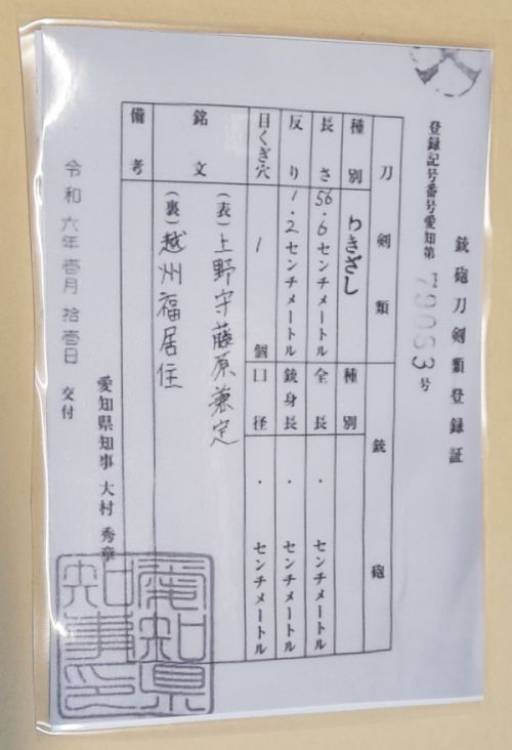 銃砲刀剣類登録証
登録記号番号愛知第79053号
刀剣類
銃砲
種別 わきざし
種別
長さ 56.6センチメートル
全長 . センチメートル
反り 1.2センチメートル
銃身長 . センチメートル
目くぎ穴 1 個
口径 . センチメートル
銘文 (表)上野守藤原兼定
(裏)越州福居住
備考
令和六年壱月拾壱日 交付
愛知県知事 大村秀章
愛知県
知事之印